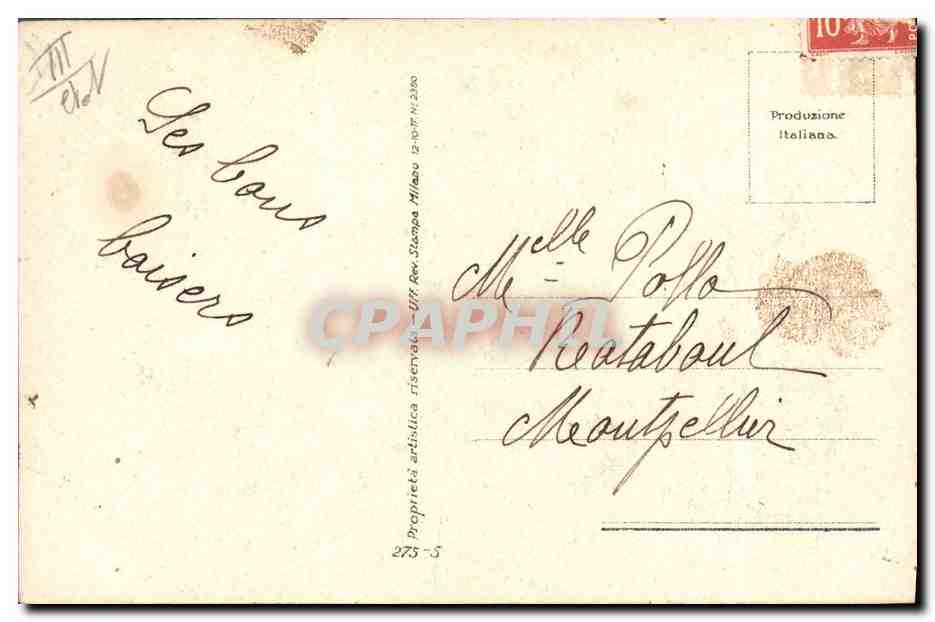 10
Les bons
baisers
Proprietà artistica riservata - Uff. Rev. Stampa Milano 12-10-17. No. 2380
275-5
Produzione
Italiana.
Melle Polla
Rataboul
Montpellier
CPAPHIL